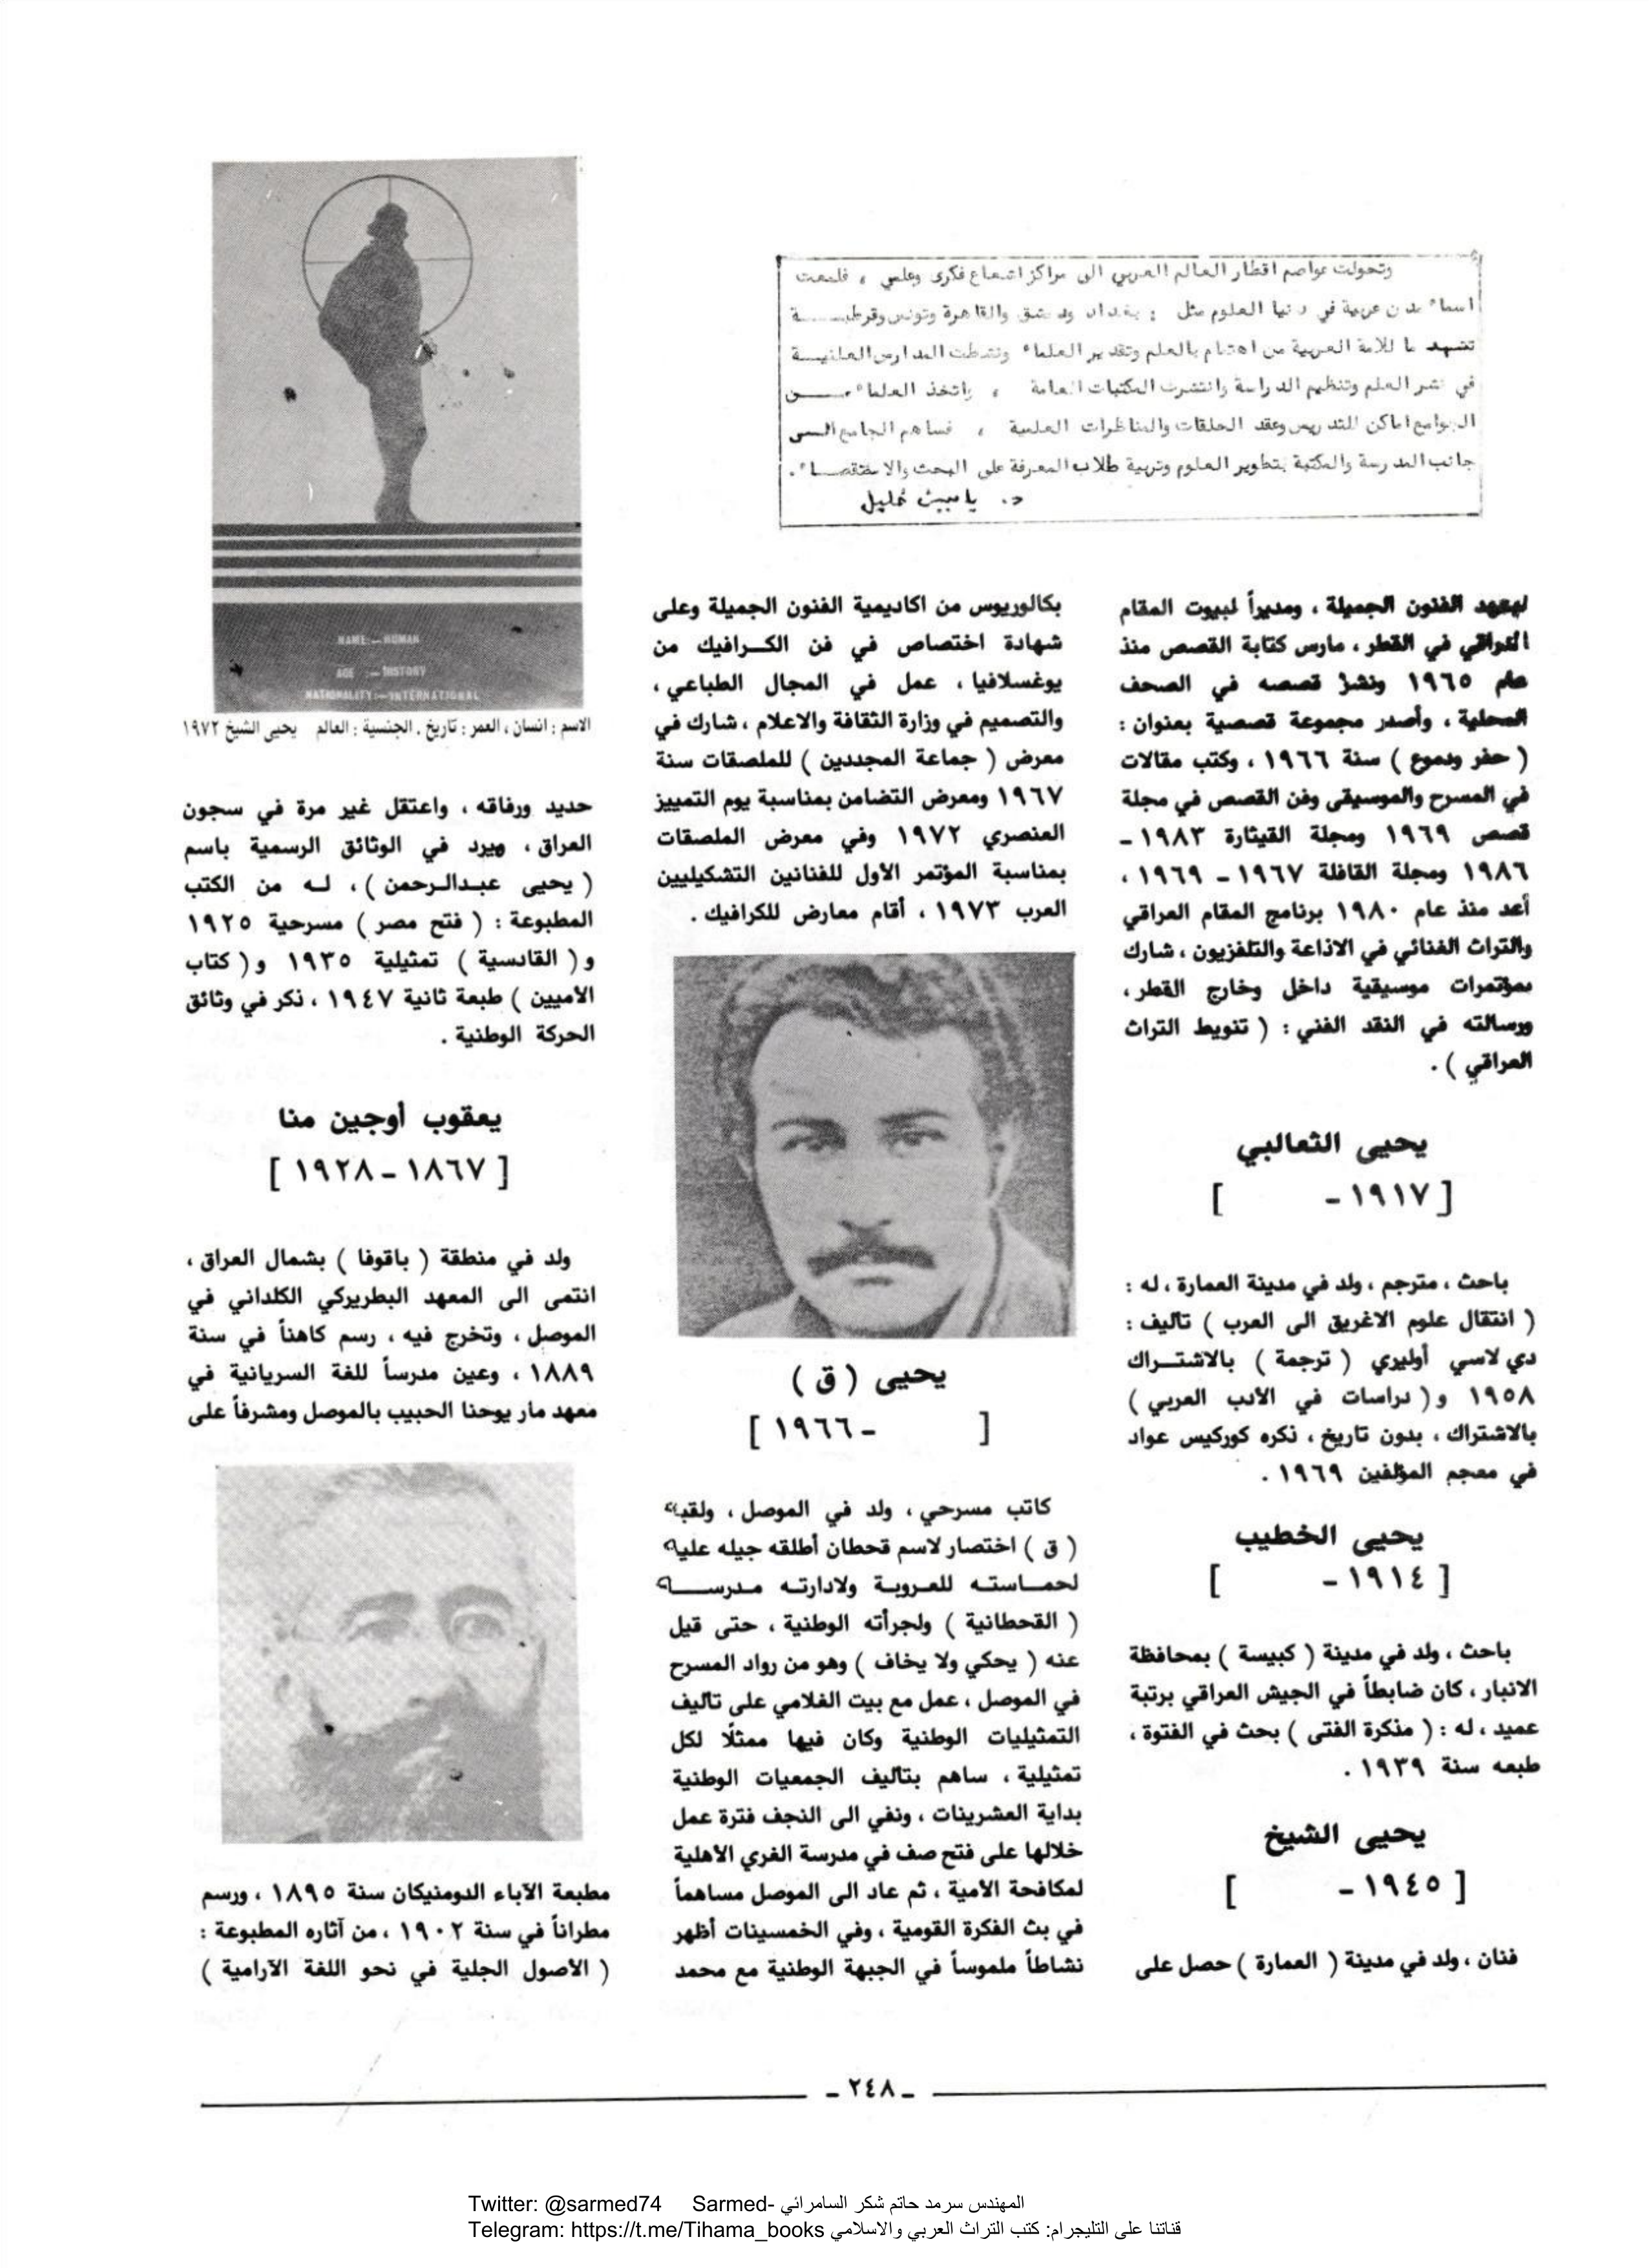 وتحولت عواصم اقطار العالم العربي الى مراكز اشعاع فكرى وعلمي ، فلمعت
اسماء مدن عربية في دنيا العلوم مثل : بغداد ودمشق والقاهرة وتونس وقرطبة
تشهد ما للامة العربية من اهتمام بالعلم وتقدير العلماء ونشطت المدارس العلمية
في نشر العلم وتنظيم الدراسة وانتشرت المكتبات العامة ، واتخذ العلماء من
الجوامع اماكن للتدريس وعقد الحلقات والمناظرات العلمية ، فساهم الجامع الى
جانب المدرسة والمكتبة بتطوير العلوم وتربية طلاب المعرفة على البحث والاستقصاء .
د. ياسين خليل
لمعهد الفنون الجميلة ، ومديراً لبيوت المقام
العراقي في القطر ، مارس كتابة القصص منذ
عام ١٩٦٥ ونشر قصصه في الصحف
المحلية ، وأصدر مجموعة قصصية بعنوان :
( حفر ودموع ) سنة ١٩٦٦ ، وكتب مقالات
في المسرح والموسيقى وفن القصص في مجلة
قصص ١٩٦٩ ومجلة القيثارة ١٩٨٣ -
١٩٨٦ ومجلة القافلة ١٩٦٧ - ١٩٦٩ ،
أعد منذ عام ١٩٨٠ برنامج المقام العراقي
والتراث الغنائي في الاذاعة والتلفزيون ، شارك
بمؤتمرات موسيقية داخل وخارج القطر ،
ورسالته في النقد الفني : ( تنويط التراث
العراقي ) .
يحيى الثعالبي
[ ١٩١٧ - ]
باحث ، مترجم ، ولد في مدينة العمارة ، له :
( انتقال علوم الاغريق الى العرب ) تأليف :
دي لاسي أوليري ( ترجمة ) بالاشتراك
١٩٥٨ و ( دراسات في الأدب العربي )
بالاشتراك ، بدون تاريخ ، ذكره كوركيس عواد
في معجم المؤلفين ١٩٦٩ .
يحيى الخطيب
[ ١٩١٤ - ]
باحث ، ولد في مدينة ( كبيسة ) بمحافظة
الانبار ، كان ضابطاً في الجيش العراقي برتبة
عميد ، له : ( مذكرة الفتى ) بحث في الفتوة ،
طبعه سنة ١٩٣٩ .
يحيى الشيخ
[ ١٩٤٥ - ]
فنان ، ولد في مدينة ( العمارة ) حصل على
بكالوريوس من اكاديمية الفنون الجميلة وعلى
شهادة اختصاص في فن الكرافيك من
يوغسلافيا ، عمل في المجال الطباعي ،
والتصميم في وزارة الثقافة والاعلام ، شارك في
معرض ( جماعة المجددين ) للملصقات سنة
١٩٦٧ ومعرض التضامن بمناسبة يوم التمييز
العنصري ١٩٧٢ وفي معرض الملصقات
بمناسبة المؤتمر الأول للفنانين التشكيليين
العرب ١٩٧٣ ، أقام معارض للكرافيك .
يحيى ( ق )
[ - ١٩٦٦ ]
كاتب مسرحي ، ولد في الموصل ، ولقبه
( ق ) اختصار لاسم قحطان أطلقه جيله عليه
لحماسته للعروبة ولادارته مدرسة
( القحطانية ) ولجرأته الوطنية ، حتى قيل
عنه ( يحكي ولا يخاف ) وهو من رواد المسرح
في الموصل ، عمل مع بيت الغلامي على تأليف
التمثيليات الوطنية وكان فيها ممثلًا لكل
تمثيلية ، ساهم بتأليف الجمعيات الوطنية
بداية العشرينات ، ونفي الى النجف فترة عمل
خلالها على فتح صف في مدرسة الغري الأهلية
لمكافحة الأمية ، ثم عاد الى الموصل مساهماً
في بث الفكرة القومية ، وفي الخمسينات أظهر
نشاطاً ملموساً في الجبهة الوطنية مع محمد
NAME:—HUMAN
AGE :—HISTORY
NATIONALITY:—INTERNATIONAL
الاسم : انسان ، العمر : تاريخ . الجنسية : العالم يحيى الشيخ ١٩٧٢
حديد ورفاقه ، واعتقل غير مرة في سجون
العراق ، ويرد في الوثائق الرسمية باسم
( يحيى عبدالرحمن ) ، له من الكتب
المطبوعة : ( فتح مصر ) مسرحية ١٩٢٥
و ( القادسية ) تمثيلية ١٩٣٥ و ( كتاب
الأميين ) طبعة ثانية ١٩٤٧ ، ذكر في وثائق
الحركة الوطنية .
يعقوب أوجين منا
[ ١٨٦٧ - ١٩٢٨ ]
ولد في منطقة ( باقوفا ) بشمال العراق ،
انتمى الى المعهد البطريركي الكلداني في
الموصل ، وتخرج فيه ، رسم كاهناً في سنة
١٨٨٩ ، وعين مدرساً للغة السريانية في
معهد مار يوحنا الحبيب بالموصل ومشرفاً على
مطبعة الآباء الدومنيكان سنة ١٨٩٥ ، ورسم
مطراناً في سنة ١٩٠٢ ، من آثاره المطبوعة :
( الأصول الجلية في نحو اللغة الآرامية )
- ٢٤٨ -
Twitter: @sarmed74 Sarmed- المهندس سرمد حاتم شكر السامرائي
Telegram: https://t.me/Tihama_books قناتنا على التليجرام: كتب التراث العربي والاسلامي